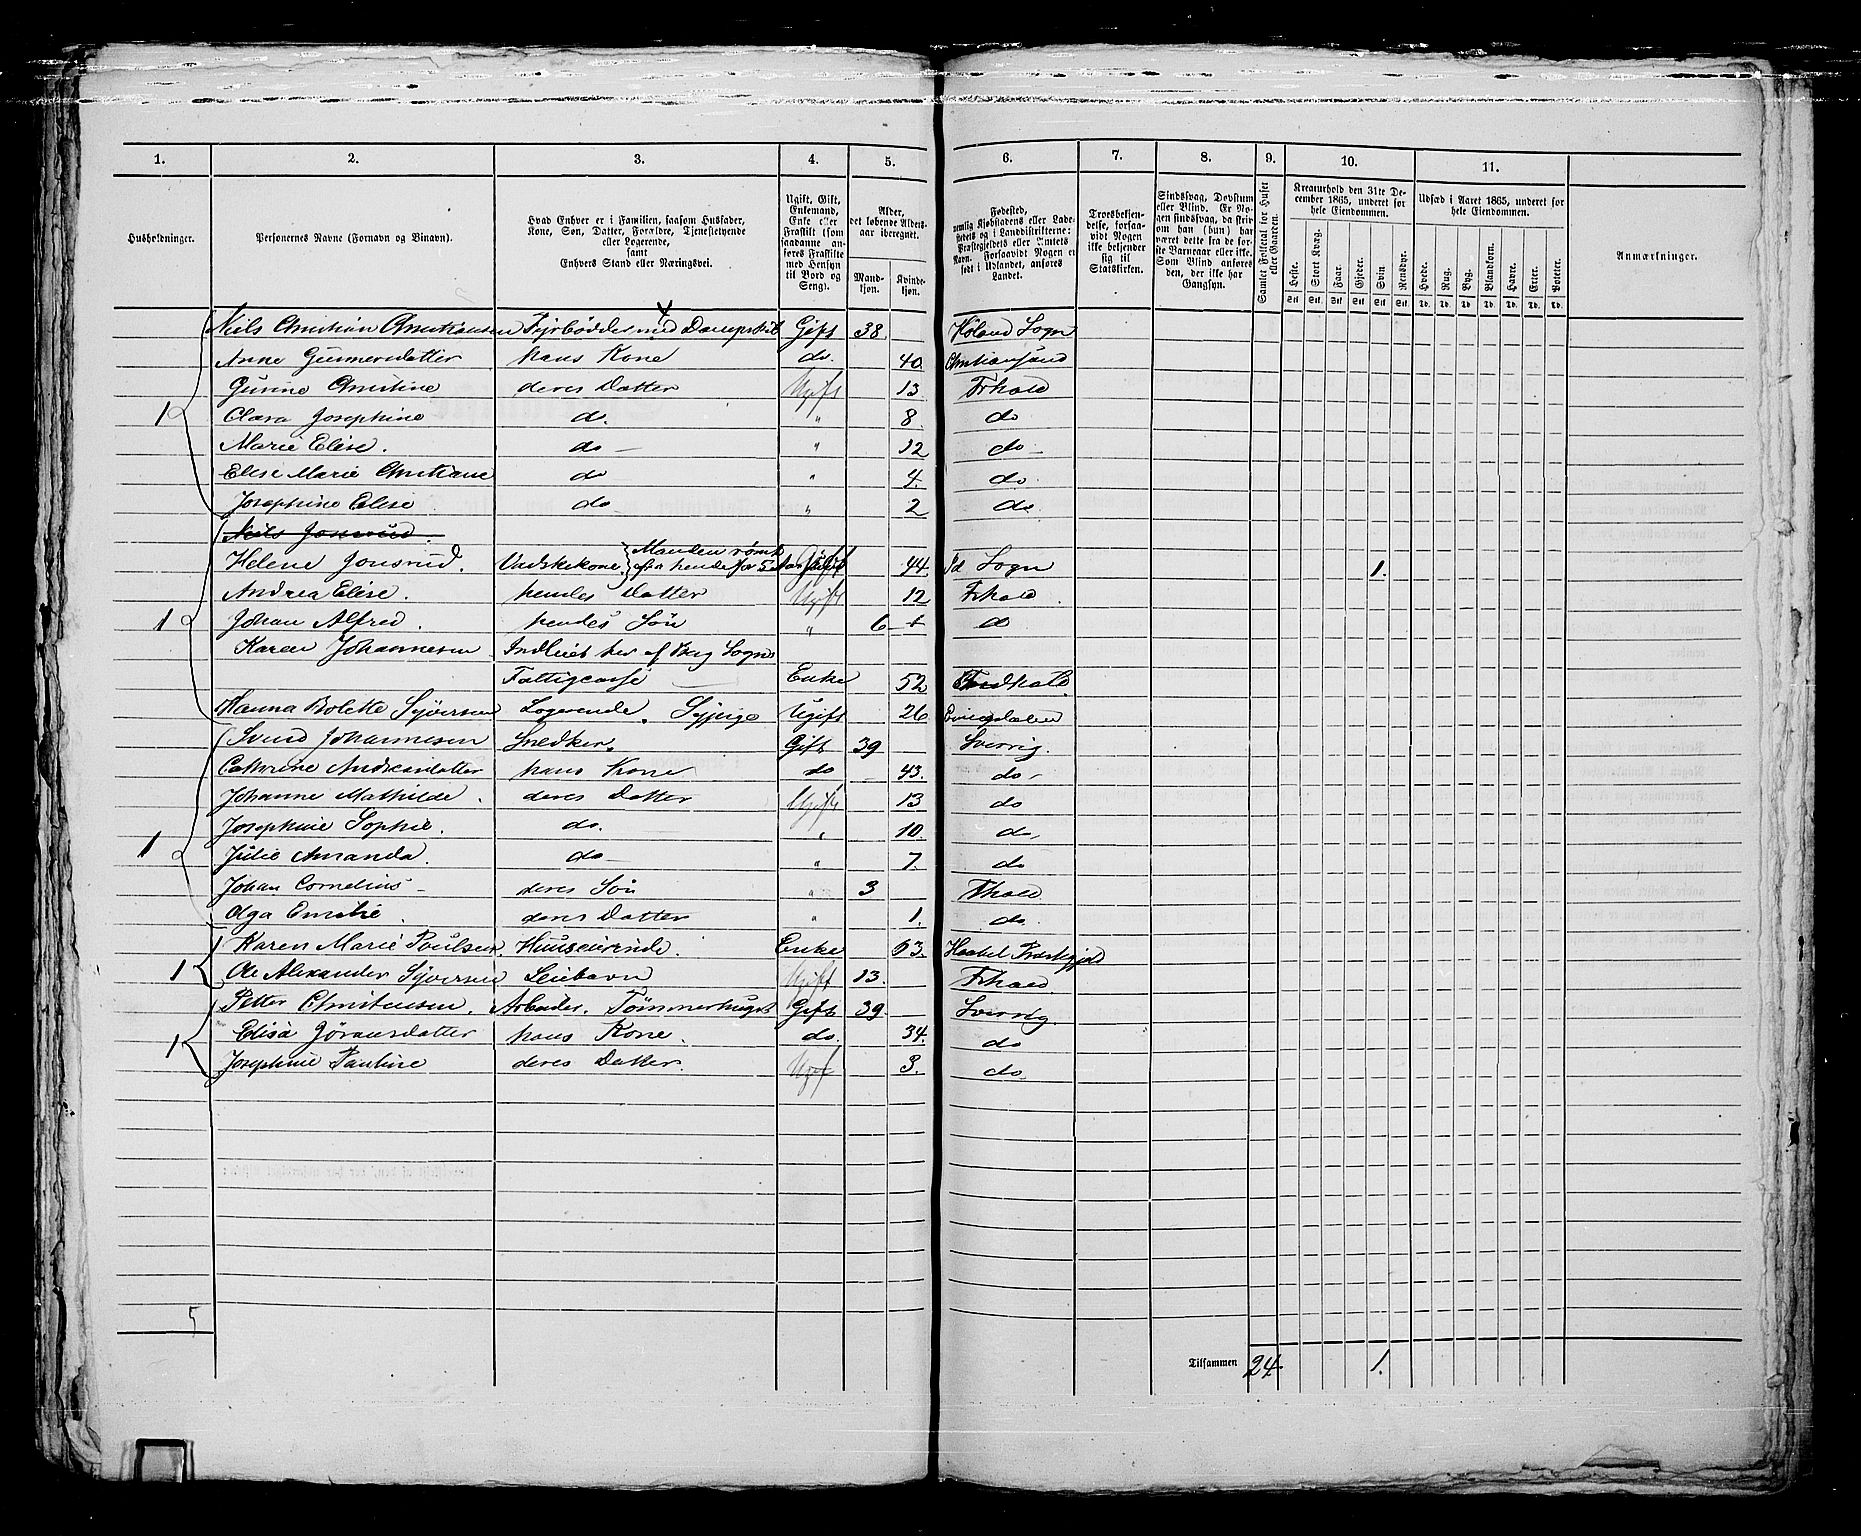 1. 2. 3. 4. 5. 6. 7. 8. 9. 10. 11.
Husholdninger.
Personernes Navne (Fornavn og Binavn).
Hvad Enhver er i Familien, saasom Husfader, Kone, Søn, Datter, Forældre, Tjenestetyende eller Logerende, samt Enhvers Stand eller Næringsvei.
Ugift, Gift, Enkemand, Enke eller Fraskilt (som saadanne anføres Fraskilte med Hensyn til Bord og Seng).
Alder, det løbende Aldersaar iberegnet.
Mandkjøn. Kvindekjøn.
Fødested, nemlig Kjøbstadens eller Ladestedets og i Landdistrikterne: Præstegjeldets eller Amtets Navn. Forsaavidt Nogen er født i Udlandet, anføres Landet.
Troesbekjendelse, forsaavidt Nogen ikke bekjender sig til Statskirken.
Sindssvag, Døvstum eller Blind. Er Nogen sindssvag, da skrives om han (hun) har været dette fra de første Barneaar eller ikke. Som Blind anføres den, der ikke har Gangsyn.
Samlet Folketal for Huset eller Gaarden.
Kreaturhold den 31te December 1865, underet for hele Eiendommen.
Heste. Stort Kvæg. Faar. Gjeder. Svin. Rensdyr.
Udsæd i Aaret 1865, underet for hele Eiendommen.
Hvede. Rug. Byg. Blandkorn. Havre. Erter. Poteter.
Anmærkninger.
Stk. Stk. Stk. Stk. Stk. Stk. Td. Td. Td. Td. Td. Td. Td.
Niels Christian Christiansen Fyrbødder med Dampskib Gift 38 Høland Sogn
Anne Gunnersdatter hans Kone do. 40 Christiansand
Gurine Christine deres Datter Ugift 13 Frhald
1 Clara Josephine do. " 8 do
Marie Elise. do " 12 do
Elise Marie Christiane do " 4 do.
Josephine Elise do " 2 do.
Niels Jonsrud.
Helene Jonsrud. Vadskekone. Manden rømt fra hende for 5 Aar Gift 44 Id Sogn 1.
Andrea Elise. hendes Datter Ugift 12 Frhald.
1 Johan Alfred. hendes Søn " 6 do
Karen Johannesen Indleiet her af Berg Sogns
Fattigcasse Enke 52
Hanna Bolette Syversen Logerende. Sypige Ugift 26 Enningdalen
Svend Johannesen Snedker. Gift 39 Sverrig.
Cathrine Andreasdatter hans Kone do 43. do
Johanne Mathilde. deres Datter Ugift 13 do
Josephine Sophie. do. " 10 do
1 Julie Amanda. do " 7 do
Johan Cornelius deres Søn " 3 Frhald
Olga Emilie. deres Datter " 1. do.
Karen Marie Poulsen. Enke 63
1 Ole Alexander Syversen Leiebarn Ugift 13. Frhald
Petter Christensen. Arbeider. Tømmerhugst Gift 39 Sverrig
1 Elisa Jøransdatter hans Kone. do. 34. do
Josephine Pauline deres Datter. Ugif 3. do
5
Tilsammen 24 1.